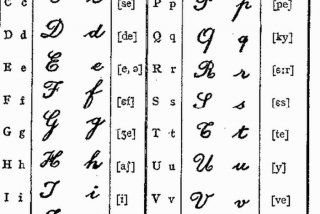 C c C c [se] P p P p [pe]
D d D d [de] Q q Q q [ky]
E e E e [e, ə] R r R r [ɛːr]
F f F f [ɛf] S s S s [ɛs]
G g G g [ʒe] T t T t [te]
H h H h [aʃ] U u U u [y]
I i I i [i] V v V v [ve]